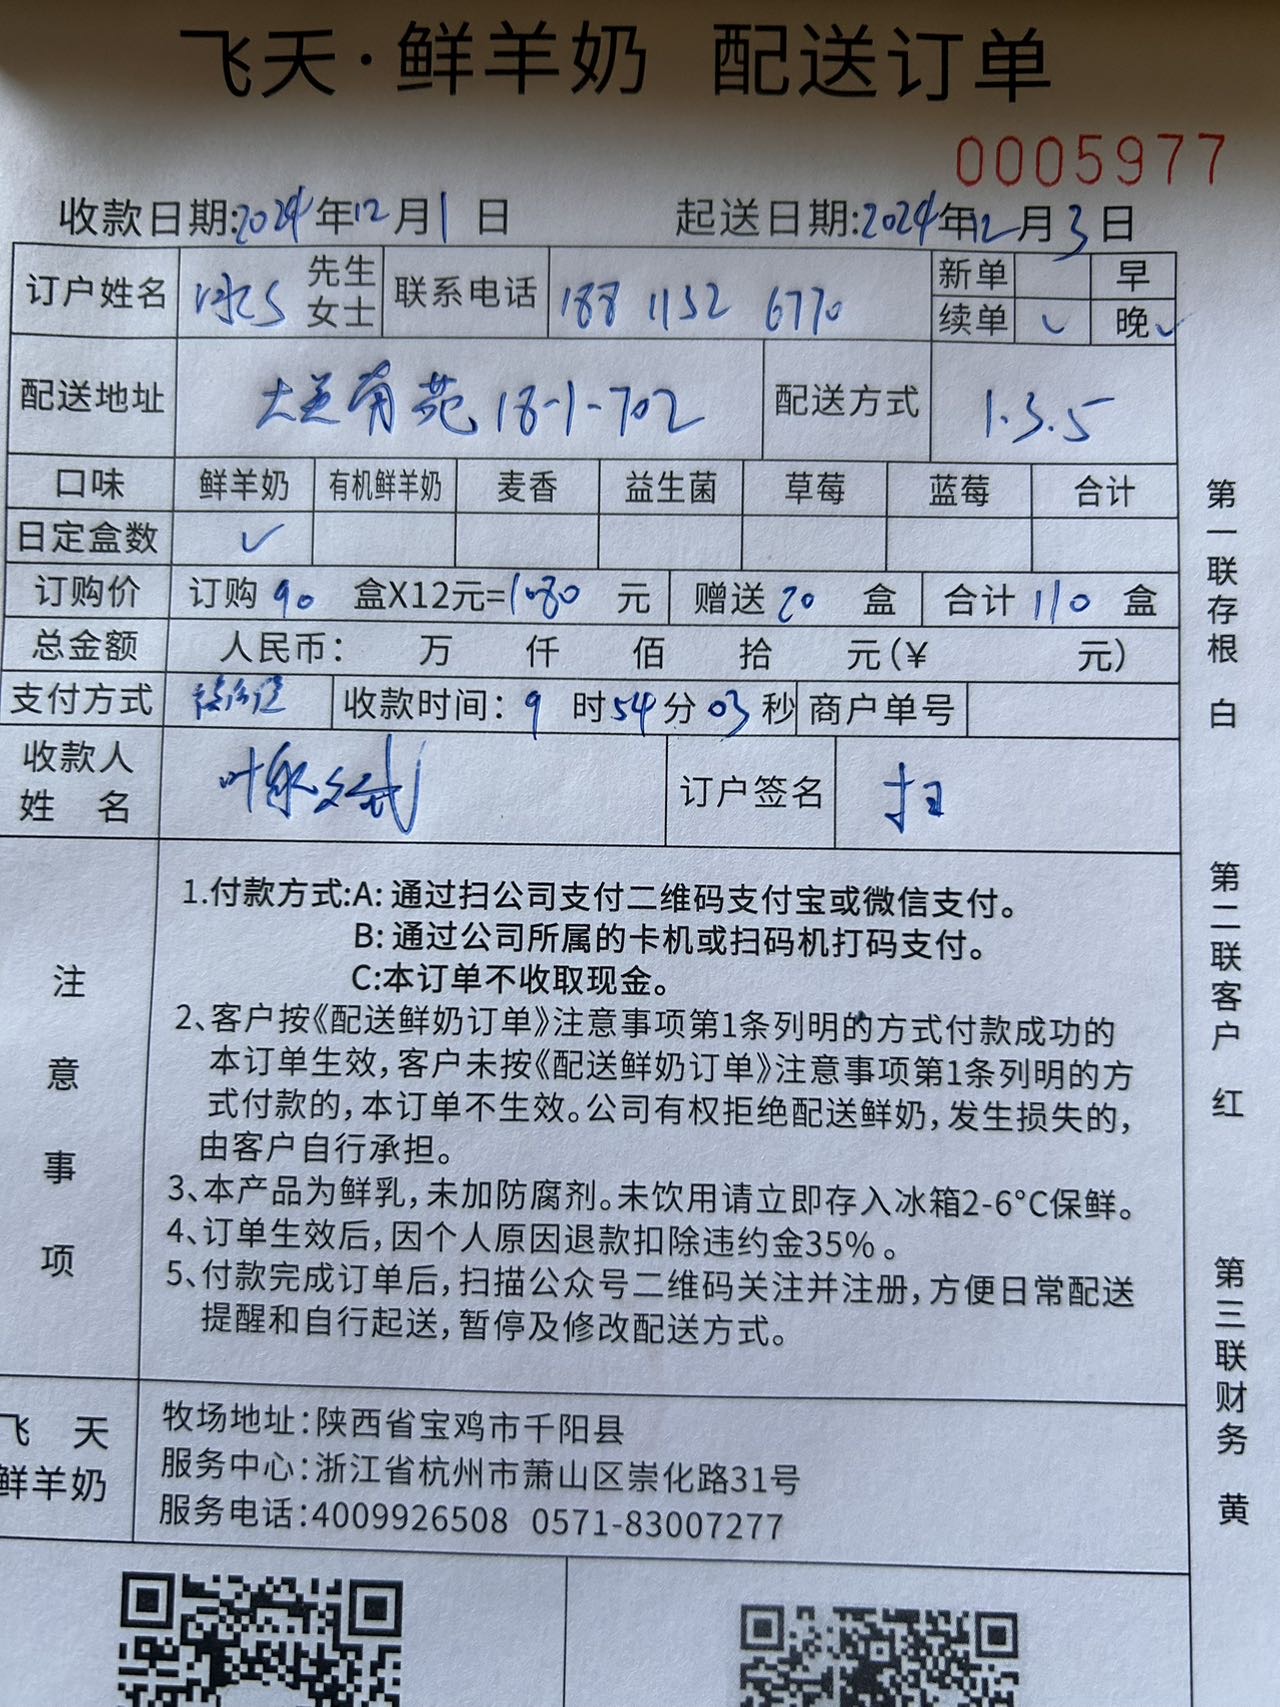 飞天·鲜羊奶 配送订单
0005977
收款日期:2024年12月1日 起送日期:2024年12月3日
订户姓名 先生 女士 联系电话 188 1132 6770 新单 早
续单 ✓ 晚 ✓
配送地址 大美南苑 18-1-702 配送方式 1.3.5
口味 鲜羊奶 有机鲜羊奶 麦香 益生菌 草莓 蓝莓 合计
日定盒数 ✓
订购价 订购 90 盒X12元=1080 元 赠送 20 盒 合计 110 盒
总金额 人民币: 万 仟 佰 拾 元(¥ 元)
支付方式 收款时间: 9 时 54 分 03 秒 商户单号
收款人
姓 名 订户签名 扫
注意事项
1.付款方式:A: 通过扫公司支付二维码支付宝或微信支付。
B: 通过公司所属的卡机或扫码机打码支付。
C:本订单不收取现金。
2、客户按《配送鲜奶订单》注意事项第1条列明的方式付款成功的
本订单生效,客户未按《配送鲜奶订单》注意事项第1条列明的方
式付款的,本订单不生效。公司有权拒绝配送鲜奶,发生损失的,
由客户自行承担。
3、本产品为鲜乳,未加防腐剂。未饮用请立即存入冰箱2-6°C保鲜。
4、订单生效后,因个人原因退款扣除违约金35%。
5、付款完成订单后,扫描公众号二维码关注并注册,方便日常配送
提醒和自行起送,暂停及修改配送方式。
飞 天
鲜羊奶
牧场地址:陕西省宝鸡市千阳县
服务中心:浙江省杭州市萧山区崇化路31号
服务电话:4009926508 0571-83007277
第一联存根 白
第二联客户 红
第三联财务 黄